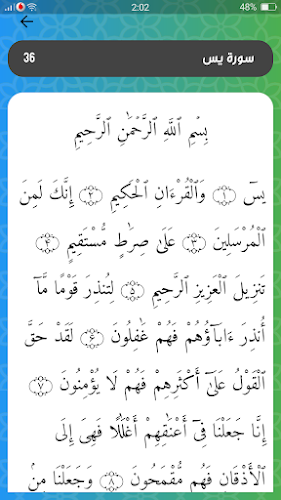 2:02
48%
سورة يس
36
بِسْمِ ٱللَّهِ ٱلرَّحْمَٰنِ ٱلرَّحِيمِ
يسٓ ﴿١﴾ وَٱلْقُرْءَانِ ٱلْحَكِيمِ ﴿٢﴾ إِنَّكَ لَمِنَ
ٱلْمُرْسَلِينَ ﴿٣﴾ عَلَىٰ صِرَٰطٍ مُّسْتَقِيمٍ ﴿٤﴾
تَنزِيلَ ٱلْعَزِيزِ ٱلرَّحِيمِ ﴿٥﴾ لِتُنذِرَ قَوْمًا مَّآ
أُنذِرَ ءَابَآؤُهُمْ فَهُمْ غَٰفِلُونَ ﴿٦﴾ لَقَدْ حَقَّ
ٱلْقَوْلُ عَلَىٰٓ أَكْثَرِهِمْ فَهُمْ لَا يُؤْمِنُونَ ﴿٧﴾
إِنَّا جَعَلْنَا فِىٓ أَعْنَٰقِهِمْ أَغْلَٰلًا فَهِىَ إِلَى
ٱلْأَذْقَانِ فَهُم مُّقْمَحُونَ ﴿٨﴾ وَجَعَلْنَا مِنۢ